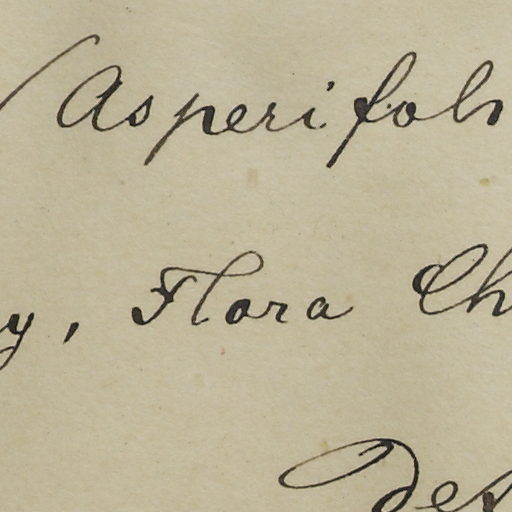 (Asperifol
y, Flora Ch
Des